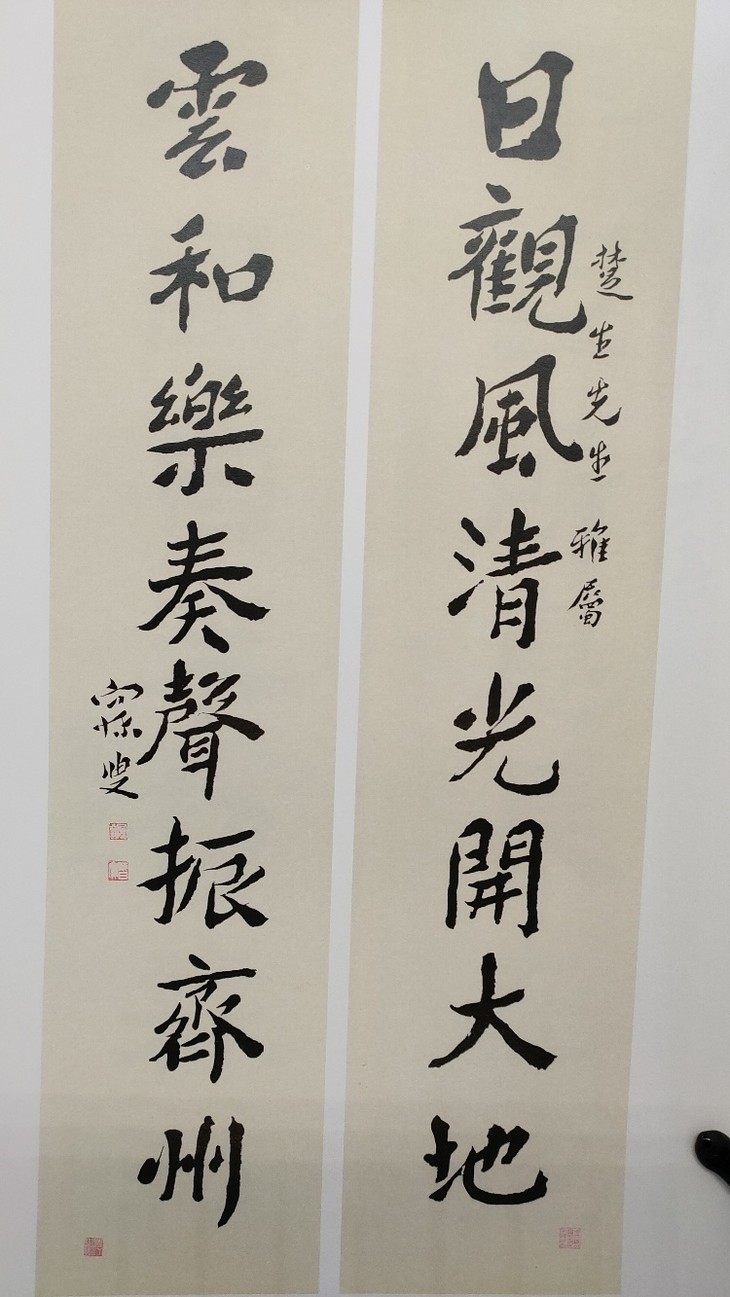 日觀風清光開大地
楚生先生雅屬
雲和樂奏聲振齊州
寐叟